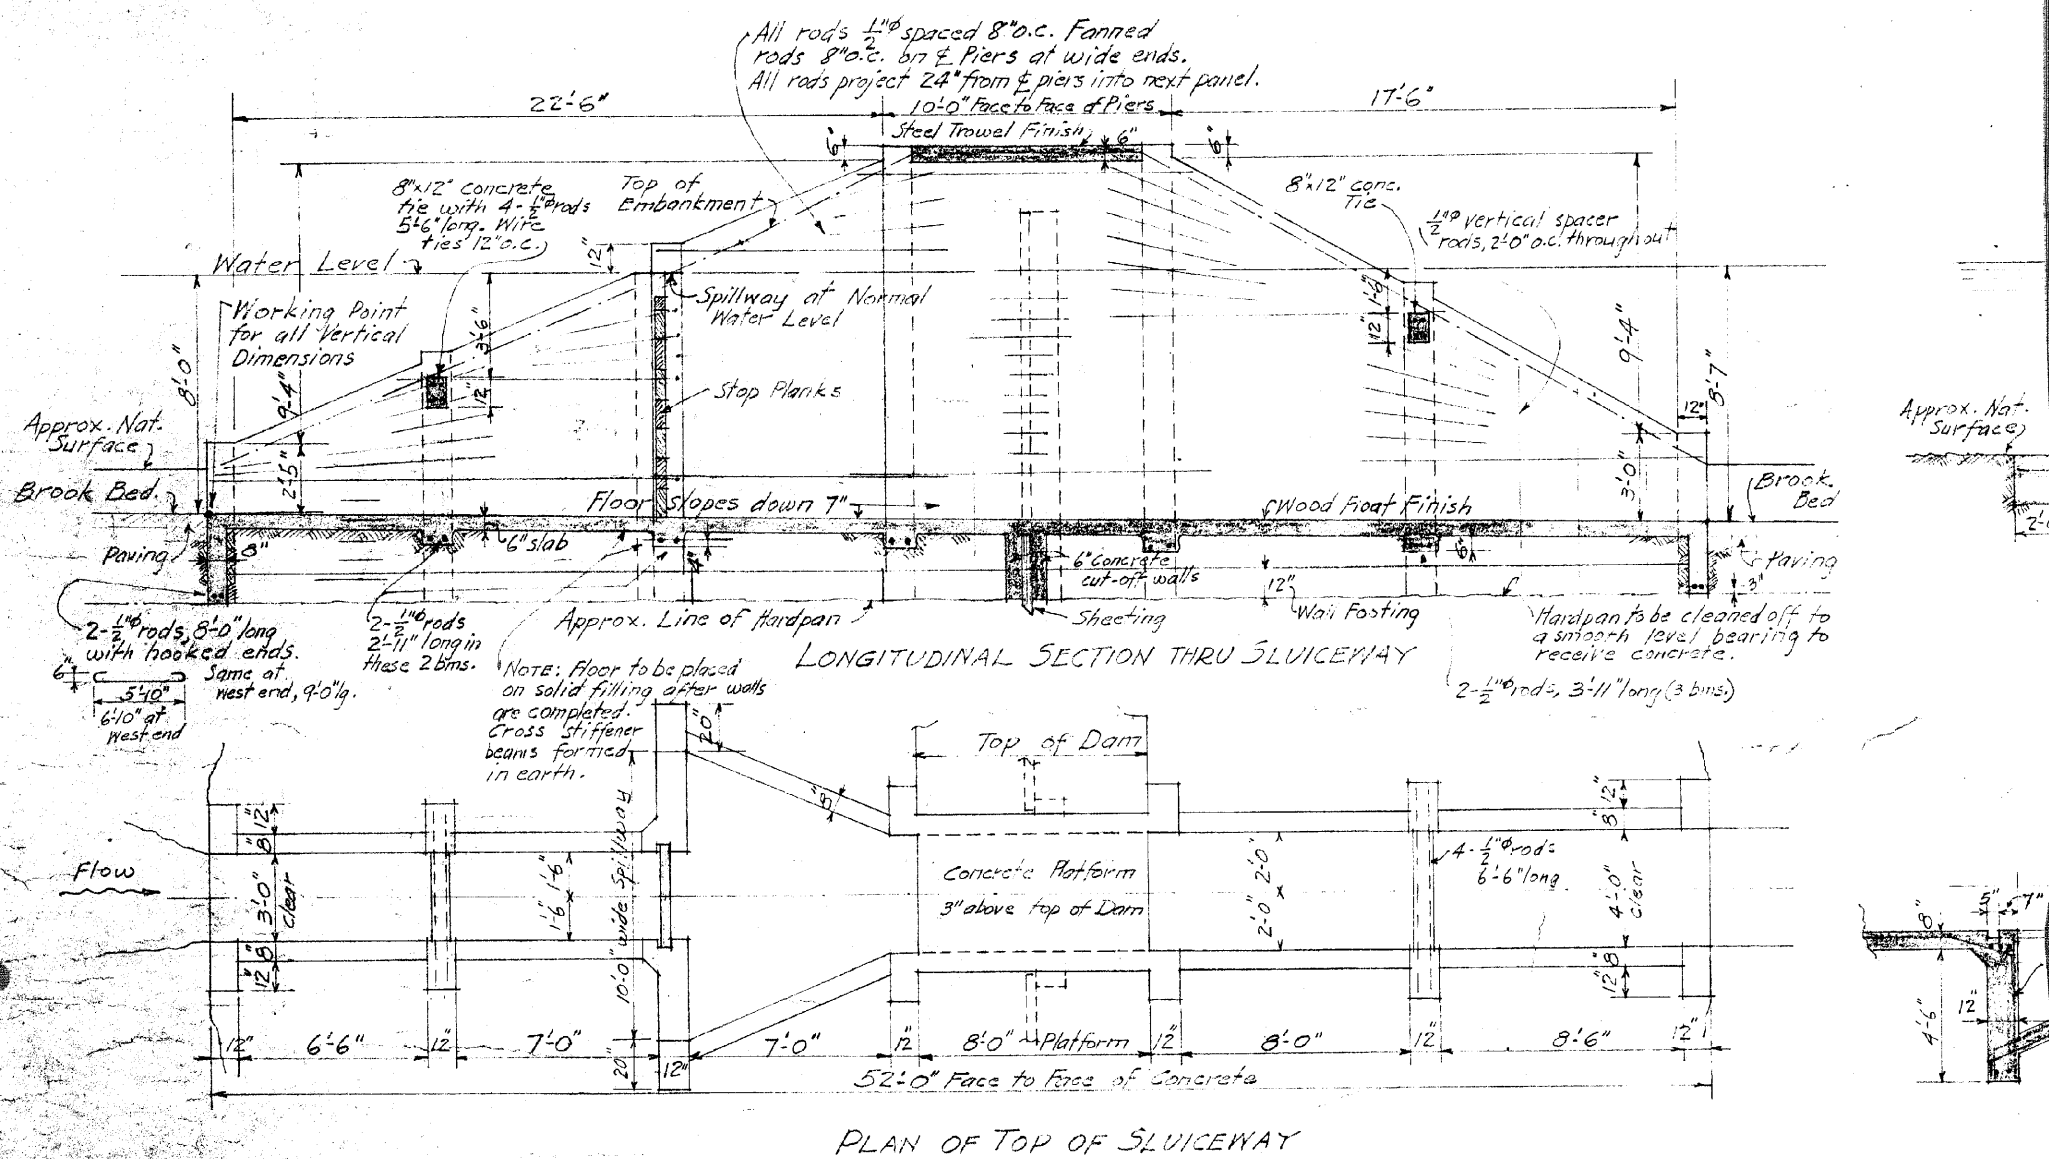 All rods ½"ø spaced 8"o.c. Fanned
rods 8"o.c. on ℄ Piers at wide ends.
All rods project 24" from ℄ piers into next panel.
22'-6"
10'-0" Face to Face of Piers
17'-6"
Steel Trowel Finish
6"
6"
6"
8"x12" concrete
tie with 4-½"ø rods
5'-6" long. Wire
ties 12"o.c.
Top of
Embankment
8"x12" conc.
Tie
½"ø vertical spacer
rods, 2'-0" o.c. throughout
12"
Water Level
Working Point
for all Vertical
Dimensions
Spillway at Normal
Water Level
3'-6"
12"
1'-6"
12"
8'-0"
9'-4"
2'-5"
Stop Planks
9'-4"
8'-7"
12"
3'-0"
Approx. Nat.
Surface
Approx. Nat.
Surface
Brook Bed.
Floor slopes down 7"
Wood Float Finish
Brook
Bed
Paving
8"
6" slab
4"
6" Concrete
cut-off walls
12"
6"
Paving
3"
2-½"ø rods, 8'-0" long
with hooked ends.
Same at
West end, 9'-0" lg.
6"
5'-10"
6'-10" at
West end
2-½"ø rods
2'-11" long in
these 2 bms.
Approx. Line of Hardpan
Sheeting
Wall Footing
Hardpan to be cleaned off to
a smooth level bearing to
receive concrete.
LONGITUDINAL SECTION THRU SLUICEWAY
2-½"ø rods, 3'-11" long (3 bms.)
NOTE: Floor to be placed
on solid filling after walls
are completed.
Cross stiffener
beams formed
in earth.
20"
Top of Dam
8"
12"
8"
3'-0"
clear
8"
12"
Flow
1'-6" 1'-6"
10'-0" wide Spillway
Concrete Platform
3" above top of Dam
2'-0" 2'-0"
4-½"ø rods
6'-6" long
12"
8"
4'-0"
clear
8"
12"
5"
7"
8"
12"
4'-6"
12"
6'-6"
12"
7'-0"
20"
12"
7'-0"
12"
8'-0" Platform
12"
8'-0"
12"
8'-6"
12"
52'-0" Face to Face of Concrete
PLAN OF TOP OF SLUICEWAY